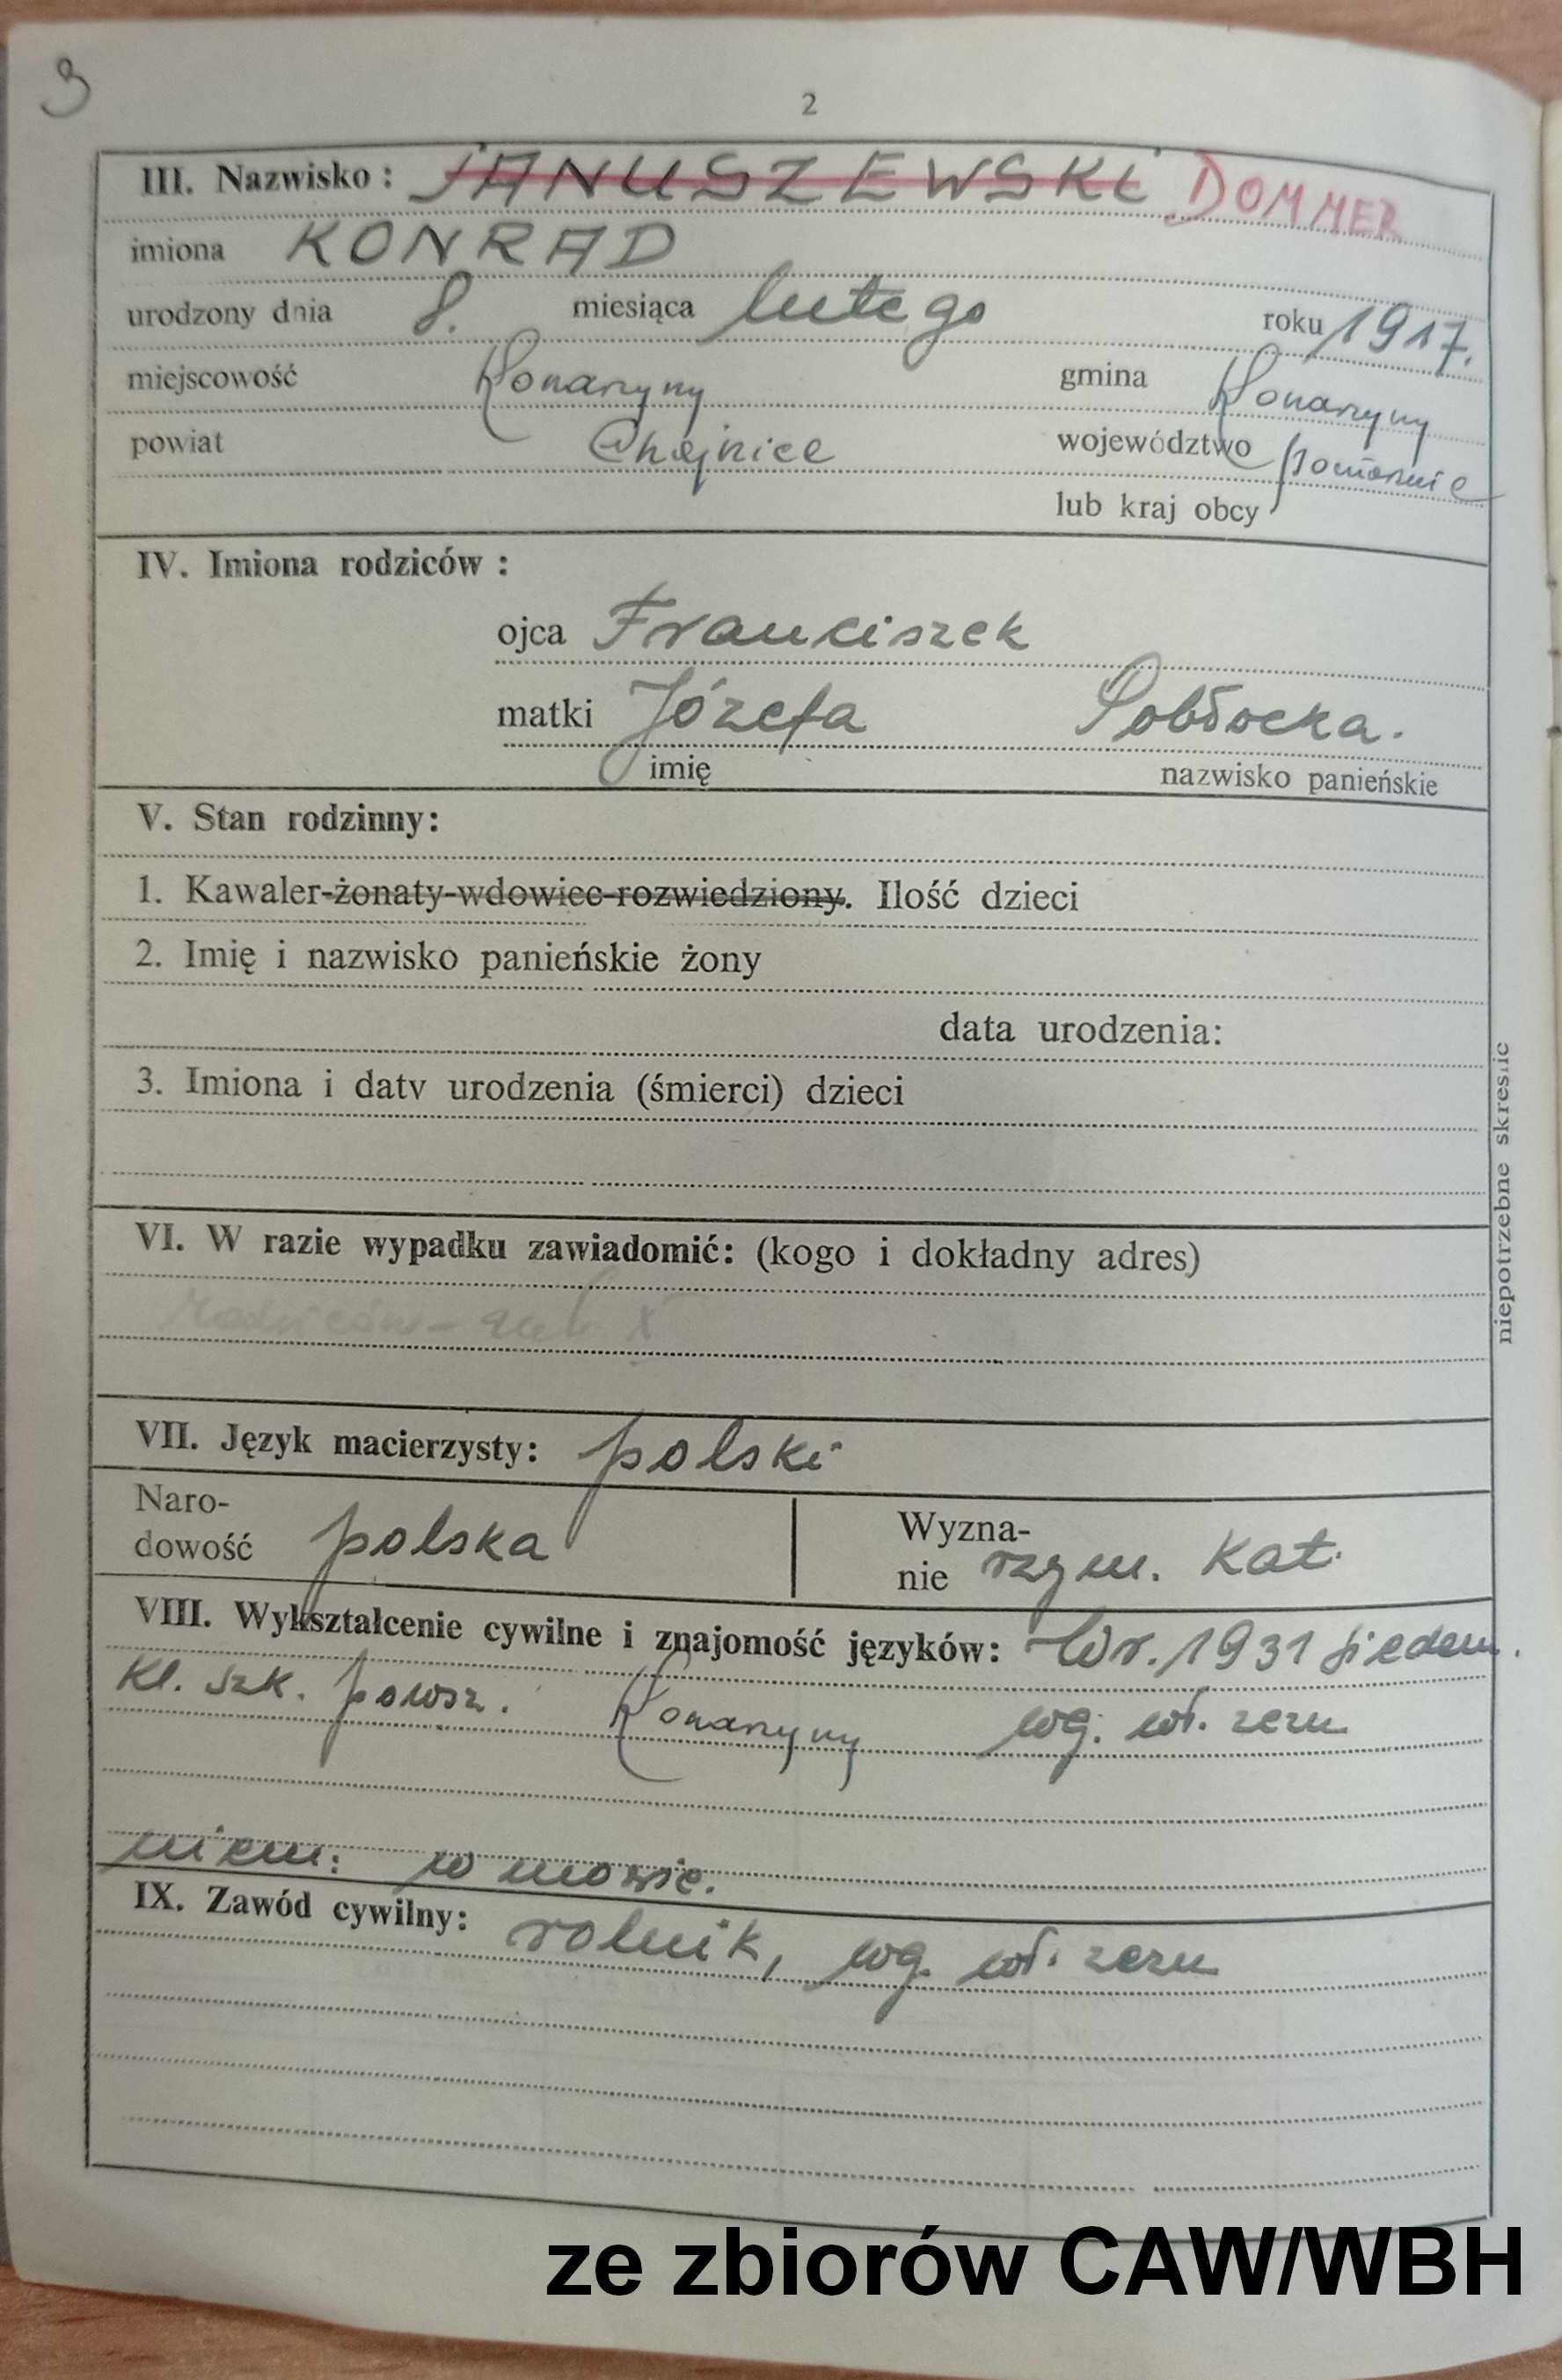 3
2
III. Nazwisko: JANUSZEWSKI DOMMER
imiona KONRAD
urodzony dnia 8. miesiąca lutego roku 1917.
miejscowość Konarzyny gmina Konarzyny
powiat Chojnice województwo Pomorskie
lub kraj obcy
IV. Imiona rodziców:
ojca Franciszek
matki Józefa Pobłocka.
imię nazwisko panieńskie
V. Stan rodzinny:
1. Kawaler-żonaty-wdowiec-rozwiedziony. Ilość dzieci
2. Imię i nazwisko panieńskie żony
data urodzenia:
3. Imiona i daty urodzenia (śmierci) dzieci
niepotrzebne skreślić
VI. W razie wypadku zawiadomić: (kogo i dokładny adres)
VII. Język macierzysty: polski
Naro-
dowość polska
Wyzna-
nie rzym. kat.
VIII. Wykształcenie cywilne i znajomość języków: W r. 1931 siedem.
kl. szk. powsz. Konarzyny wg. wł. zezn
niem: w mowie.
IX. Zawód cywilny: rolnik, wg. wł. zezn
ze zbiorów CAW/WBH